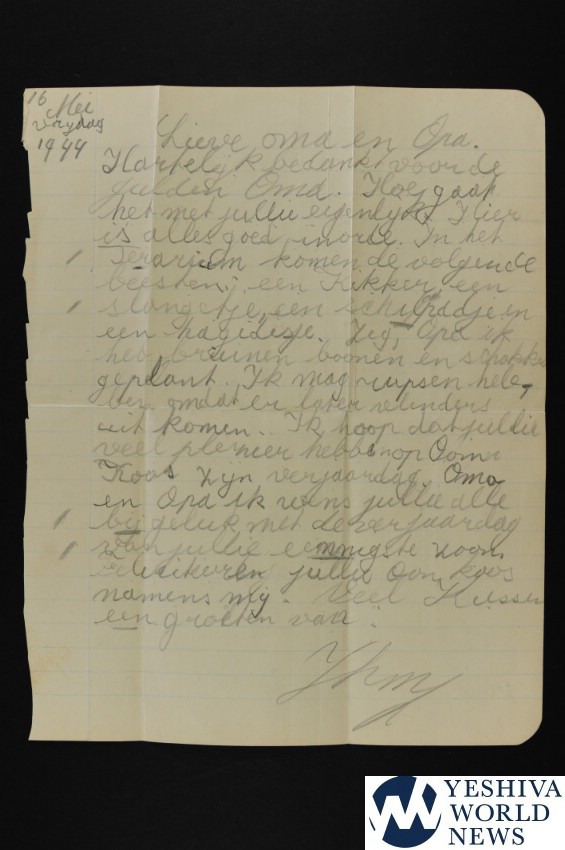 16 Mei
vrijdag
1944
Lieve oma en Opa.
Hartelijk bedankt voor de
gulden Oma. Hoe gaat
het met jullie eigenlijk? Hier
is alles goed in orde. In het
Terarium komen de volgende
beesten; een Kikker een
slangetje, een schilpadje en
een hagedisje. Zeg, Opa ik
heb bruinen boonen en
geplant. Ik mag rupsen heb-
ben omdat er later vlinders
uit komen. Ik hoop dat jullie
veel plezier hebben op Oome
Koos zijn verjaardag. Oma
en Opa ik wens jullie alle
bij geluk met de verjaardag
van jullie eennigste zoon
jullie Oom Koos
namens mij. Veel Kussen
een groeten van:
YESHIVA
WORLD
NEWS